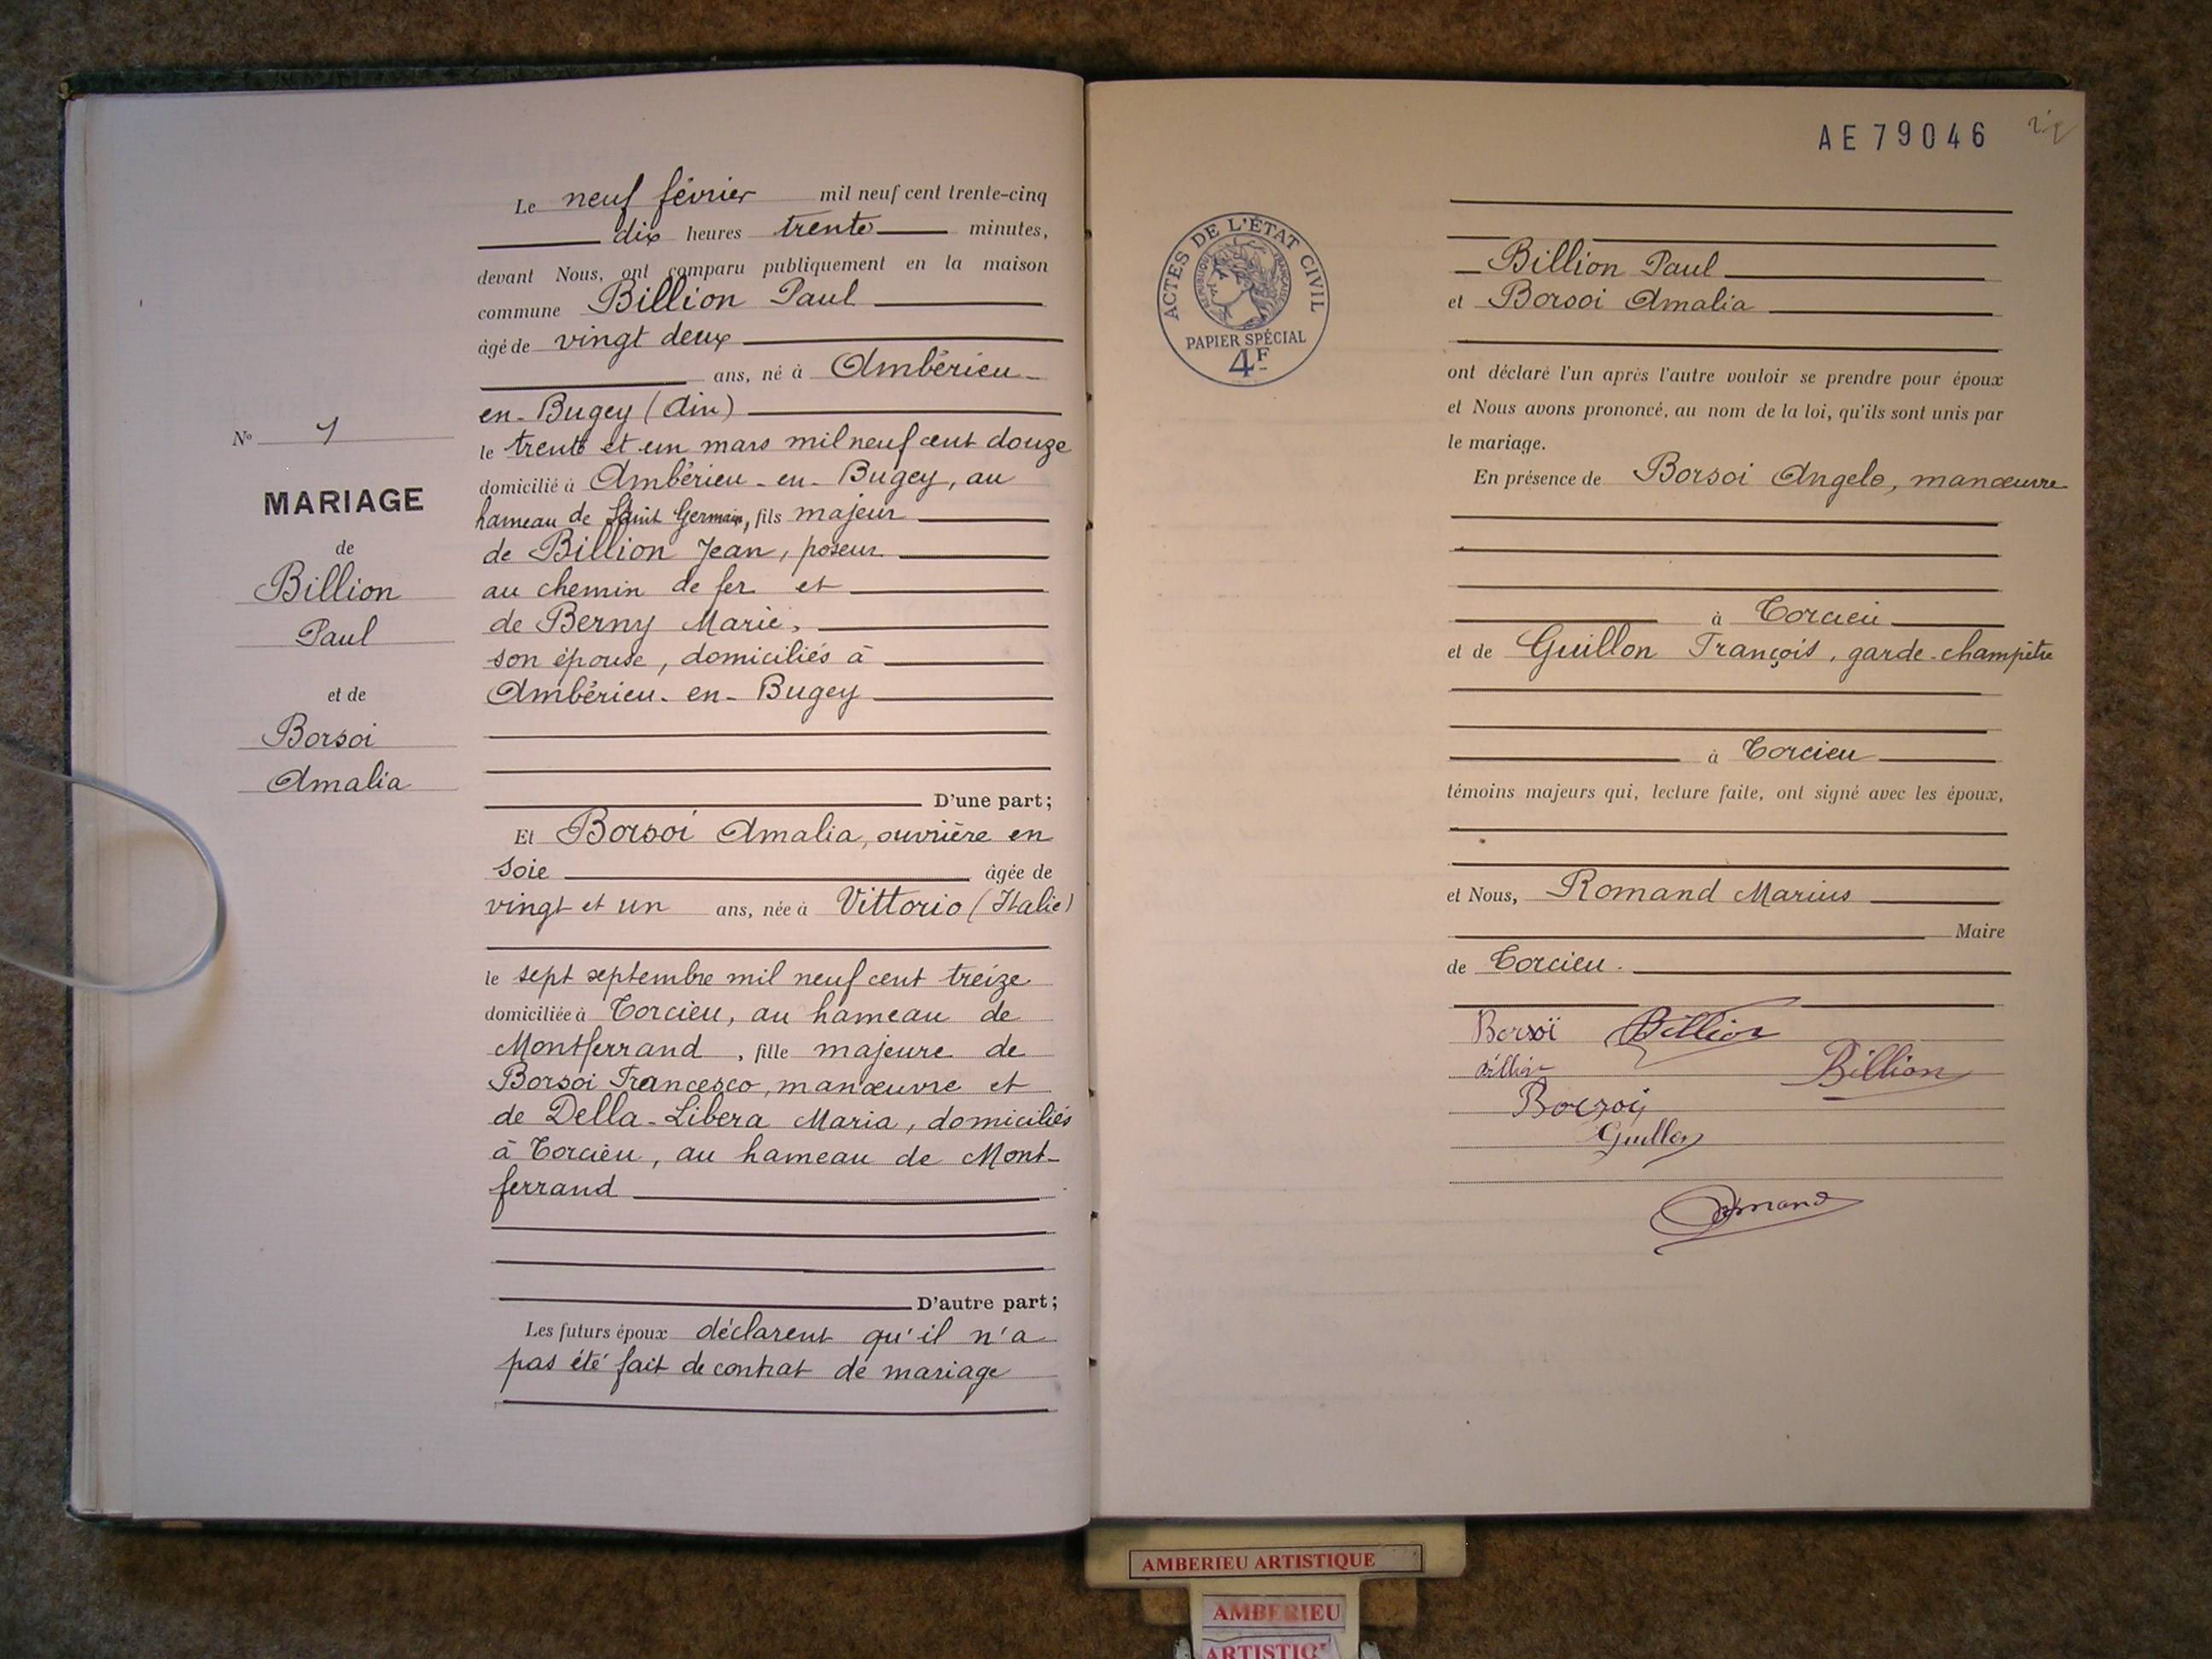 Le neuf février mil neuf cent trente-cinq
dix heures trente minutes,
devant Nous, ont comparu publiquement en la maison
commune Billion Paul
âgé de vingt deux
ans, né à Ambérieu-
en-Bugey (Ain)
le trente et un mars mil neuf cent douze
domicilié à Ambérieu-en-Bugey, au
hameau de Saint Germain, fils majeur
de Billion Jean, poseur
au chemin de fer et
de Berny Marie,
son épouse, domiciliés à
Ambérieu-en-Bugey
D'une part;
Et Borsoi Amalia, ouvrière en
soie âgée de
vingt et un ans, née à Vittorio (Italie)
le sept septembre mil neuf cent treize
domiciliée à Torcieu, au hameau de
Montferrand, fille majeure de
Borsoi Francesco, manœuvre et
de Della-Libera Maria, domiciliés
à Torcieu, au hameau de Mont-
ferrand
D'autre part;
Les futurs époux déclarent qu'il n'a
pas été fait de contrat de mariage
No 1
MARIAGE
de
Billion
Paul
et de
Borsoi
Amalia
AE79046
ACTES DE L'ÉTAT CIVIL
RÉPUBLIQUE FRANÇAISE
PAPIER SPÉCIAL
4F
Billion Paul
et Borsoi Amalia
ont déclaré l'un après l'autre vouloir se prendre pour époux
et Nous avons prononcé, au nom de la loi, qu'ils sont unis par
le mariage.
En présence de Borsoi Angelo, manœuvre
à Torcieu
et de Guillon François, garde-champêtre
à Torcieu
témoins majeurs qui, lecture faite, ont signé avec les époux,
et Nous, Romand Marius
Maire
de Torcieu.
Borsoï Billion
Billion Billion
Borsoi
Guillon
Romand
AMBERIEU ARTISTIQUE
AMBERIEU
ARTISTIQ